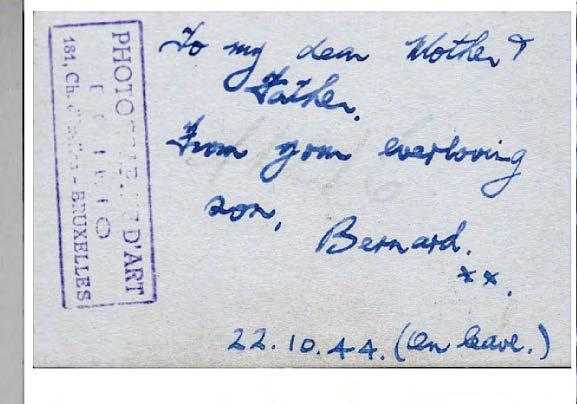 To my dear Mother &
Father.
From your everloving
son,
Bernard.
xx.
22.10.44. (On leave.)
PHOTO D'ART
181, Ch. - BRUXELLES